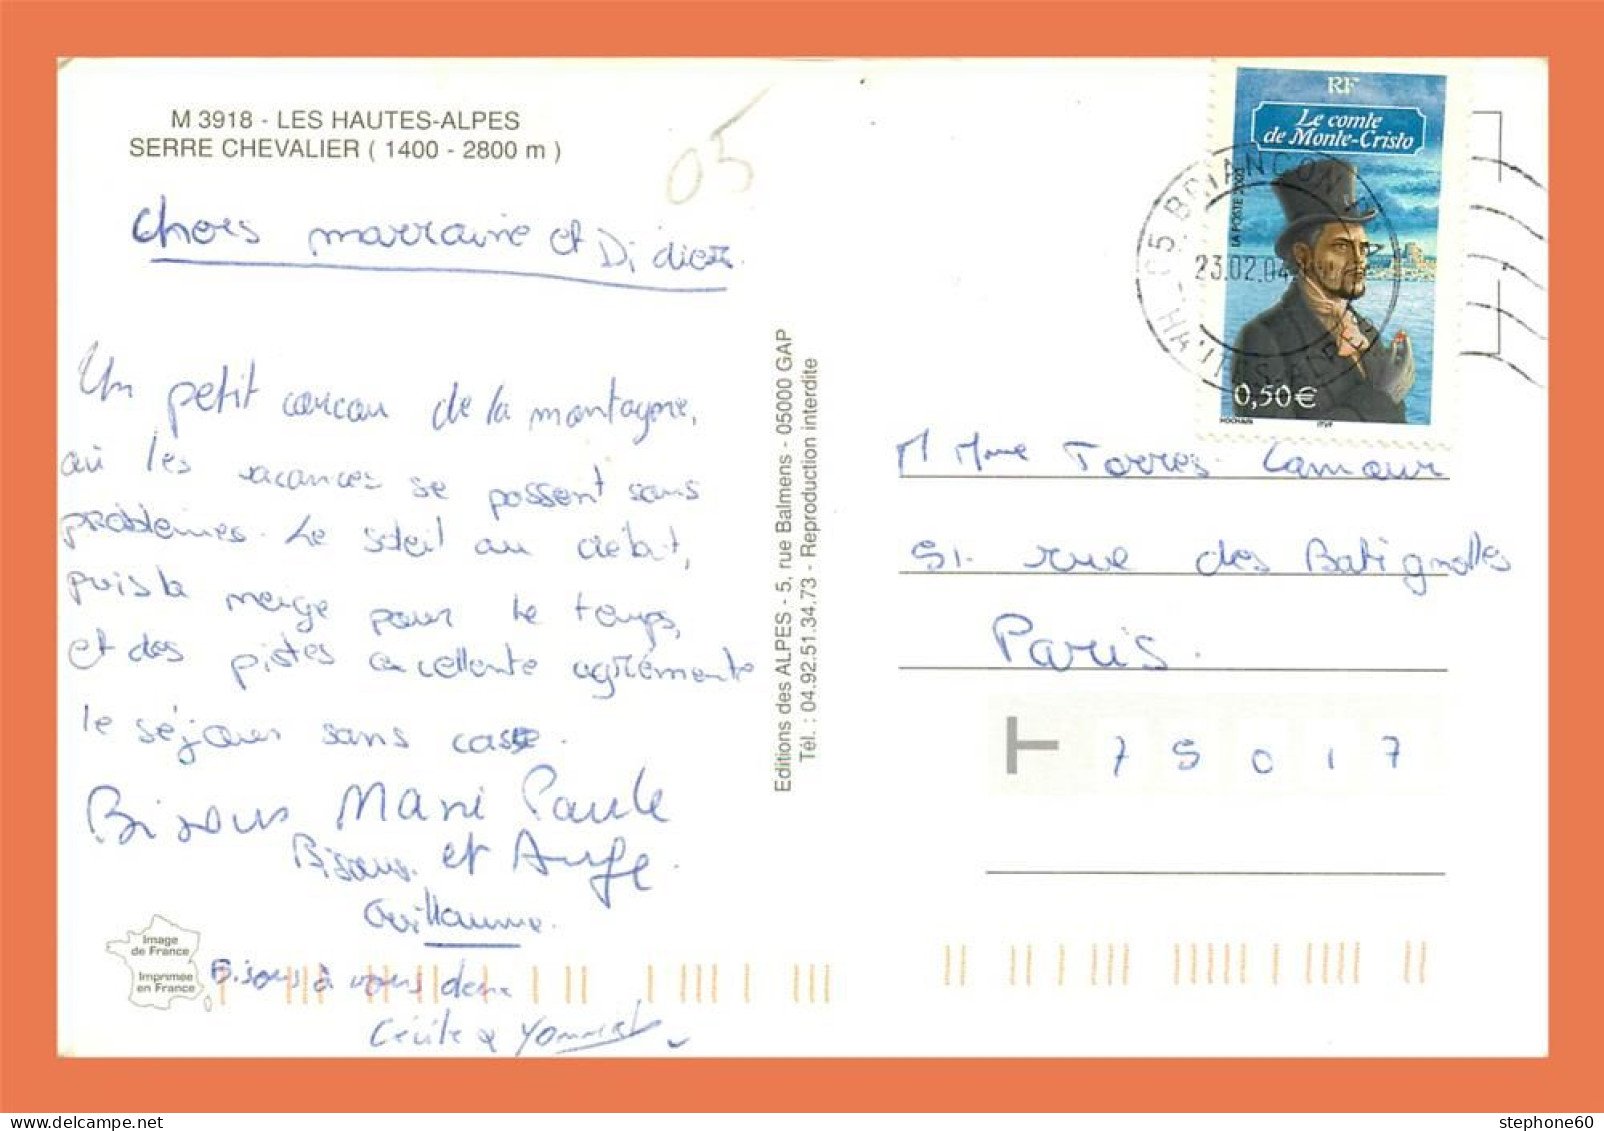 M 3918 - LES HAUTES-ALPES
SERRE CHEVALIER ( 1400 - 2800 m )
05
chers marraine et Didier.
Un petit coucou de la montagne,
où les vacances se passent sans
problèmes. Le soleil au début,
puis la neige pour le temps,
et des pistes excellente agrémente
le séjour sans casse.
Bisous Marie Paule
et Ange.
Bisous.
Guillaume.
Bisous à vous deux
Cécile &
Image
de France
Imprimée
en France
Editions des ALPES - 5, rue Balmens - 05000 GAP
Tél. : 04.92.51.34.73 - Reproduction interdite
RF
Le comte
de Monte-Cristo
LA POSTE 2003
0,50€
ITVF
05 BRIANCON
23.02.04
HAUTES-ALPES
M Mme Torres Lamour
51. rue des Batignolles
Paris.
T 75017
stephone60